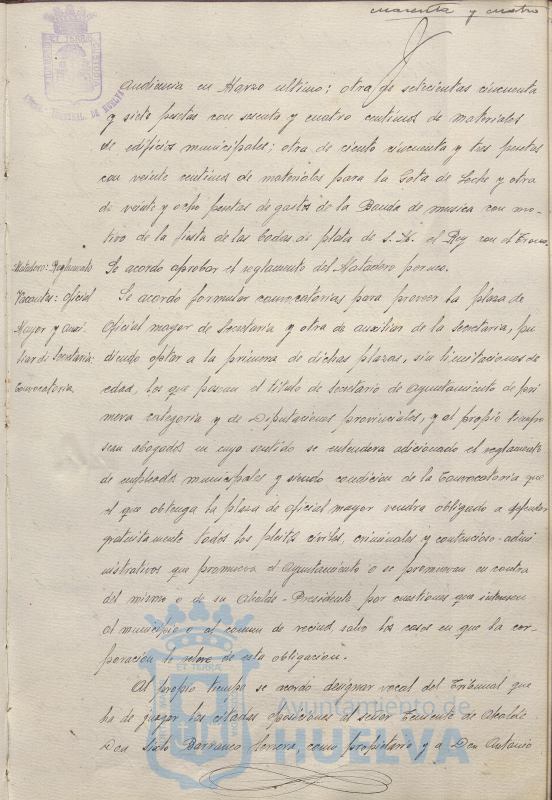 cuarenta y cuatro
Audiencia en Marzo ultimo; otra de setecientas cincuenta
y siete pesetas con sesenta y cuatro centimos de materiales
de edificios municipales; otra de ciento cincuenta y tres pesetas
con veinte centimos de materiales para la Gota de Leche y otra
de veinte y ocho pesetas de gastos de la Banda de musica con mo-
tivo de la fiesta de las bodas de plata de S. M. el Rey con el Trono.
Matadero: Reglamento
Se acordo aprobar el reglamento del Matadero
Vacantes: Oficial
Mayor y auxi-
liar de Secretaria:
Convocatoria
Se acordo formular convocatorias para proveer la plaza de
Oficial mayor de Secretaria y otra de auxiliar de la Secretaria, pu-
diendo optar a la primera de dichas plazas, sin limitaciones de
edad, los que posean el titulo de Secretario de Ayuntamiento de pri-
mera categoria y de Diputaciones provinciales, y al propio tiempo
sean abogados en cuyo sentido se entendera adicionado el reglamento
de empleados municipales y siendo condicion de la Convocatoria que
el que obtenga la plaza de oficial mayor vendra obligado a defender
gratuitamente todos los pleitos civiles, criminales y contencioso-admi-
nistrativos que promueva el Ayuntamiento o se promuevan en contra
del mismo o de su Alcalde-Presidente por cuestiones que interesen
al municipio o al comun de vecinos, salvo los casos en que la cor-
poracion le releve de esta obligacion.
Al propio tiempo se acordo designar vocal del Tribunal que
ha de juzgar las citadas oposiciones al señor Teniente de Alcalde
Don Sixto Barranco como propietario y a Don Antonio
Ayuntamiento de
HUELVA